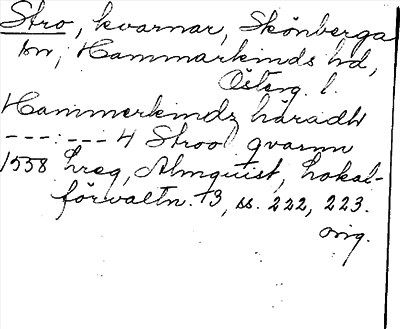 Stro, kvarnar, Skönberga
sn, Hammarkinds hd,
Österg. l.
Hammerkindz häradh
---:--- 4 Stroo qvarnn
1558 hreg, Almquist, Lokal-
förvaltn. +3, ss. 222, 223.
orig.